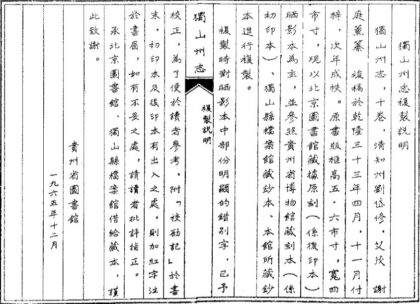 獨山州志複製說明
獨山州志，十卷，清知州劉岱修，艾茂　謝
庭薰纂，復稿於乾隆三十三年四月，十一月付
梓，次年成帙。原書版框高五·六市寸，寬四
市寸，現以北京圖書館藏據原刻（係後印本）
晒影本為主，並參照貴州省博物館藏刻本（係
初印本）、獨山縣檔案館藏鈔本、本館所藏鈔
本進行複製。
獨山州志
複製說明
複製時對晒影本中部份明顯的錯別字，已予
校正，為了便於讀者參考，附「校勘記」於書
末，初印本及後印本有出入之處，則加紅字注
於書眉，如有不妥之處，請讀者批評指正。
承北京圖書館、獨山縣檔案館借給藏本，謹
此致謝。
貴州省圖書館
一九六五年十二月